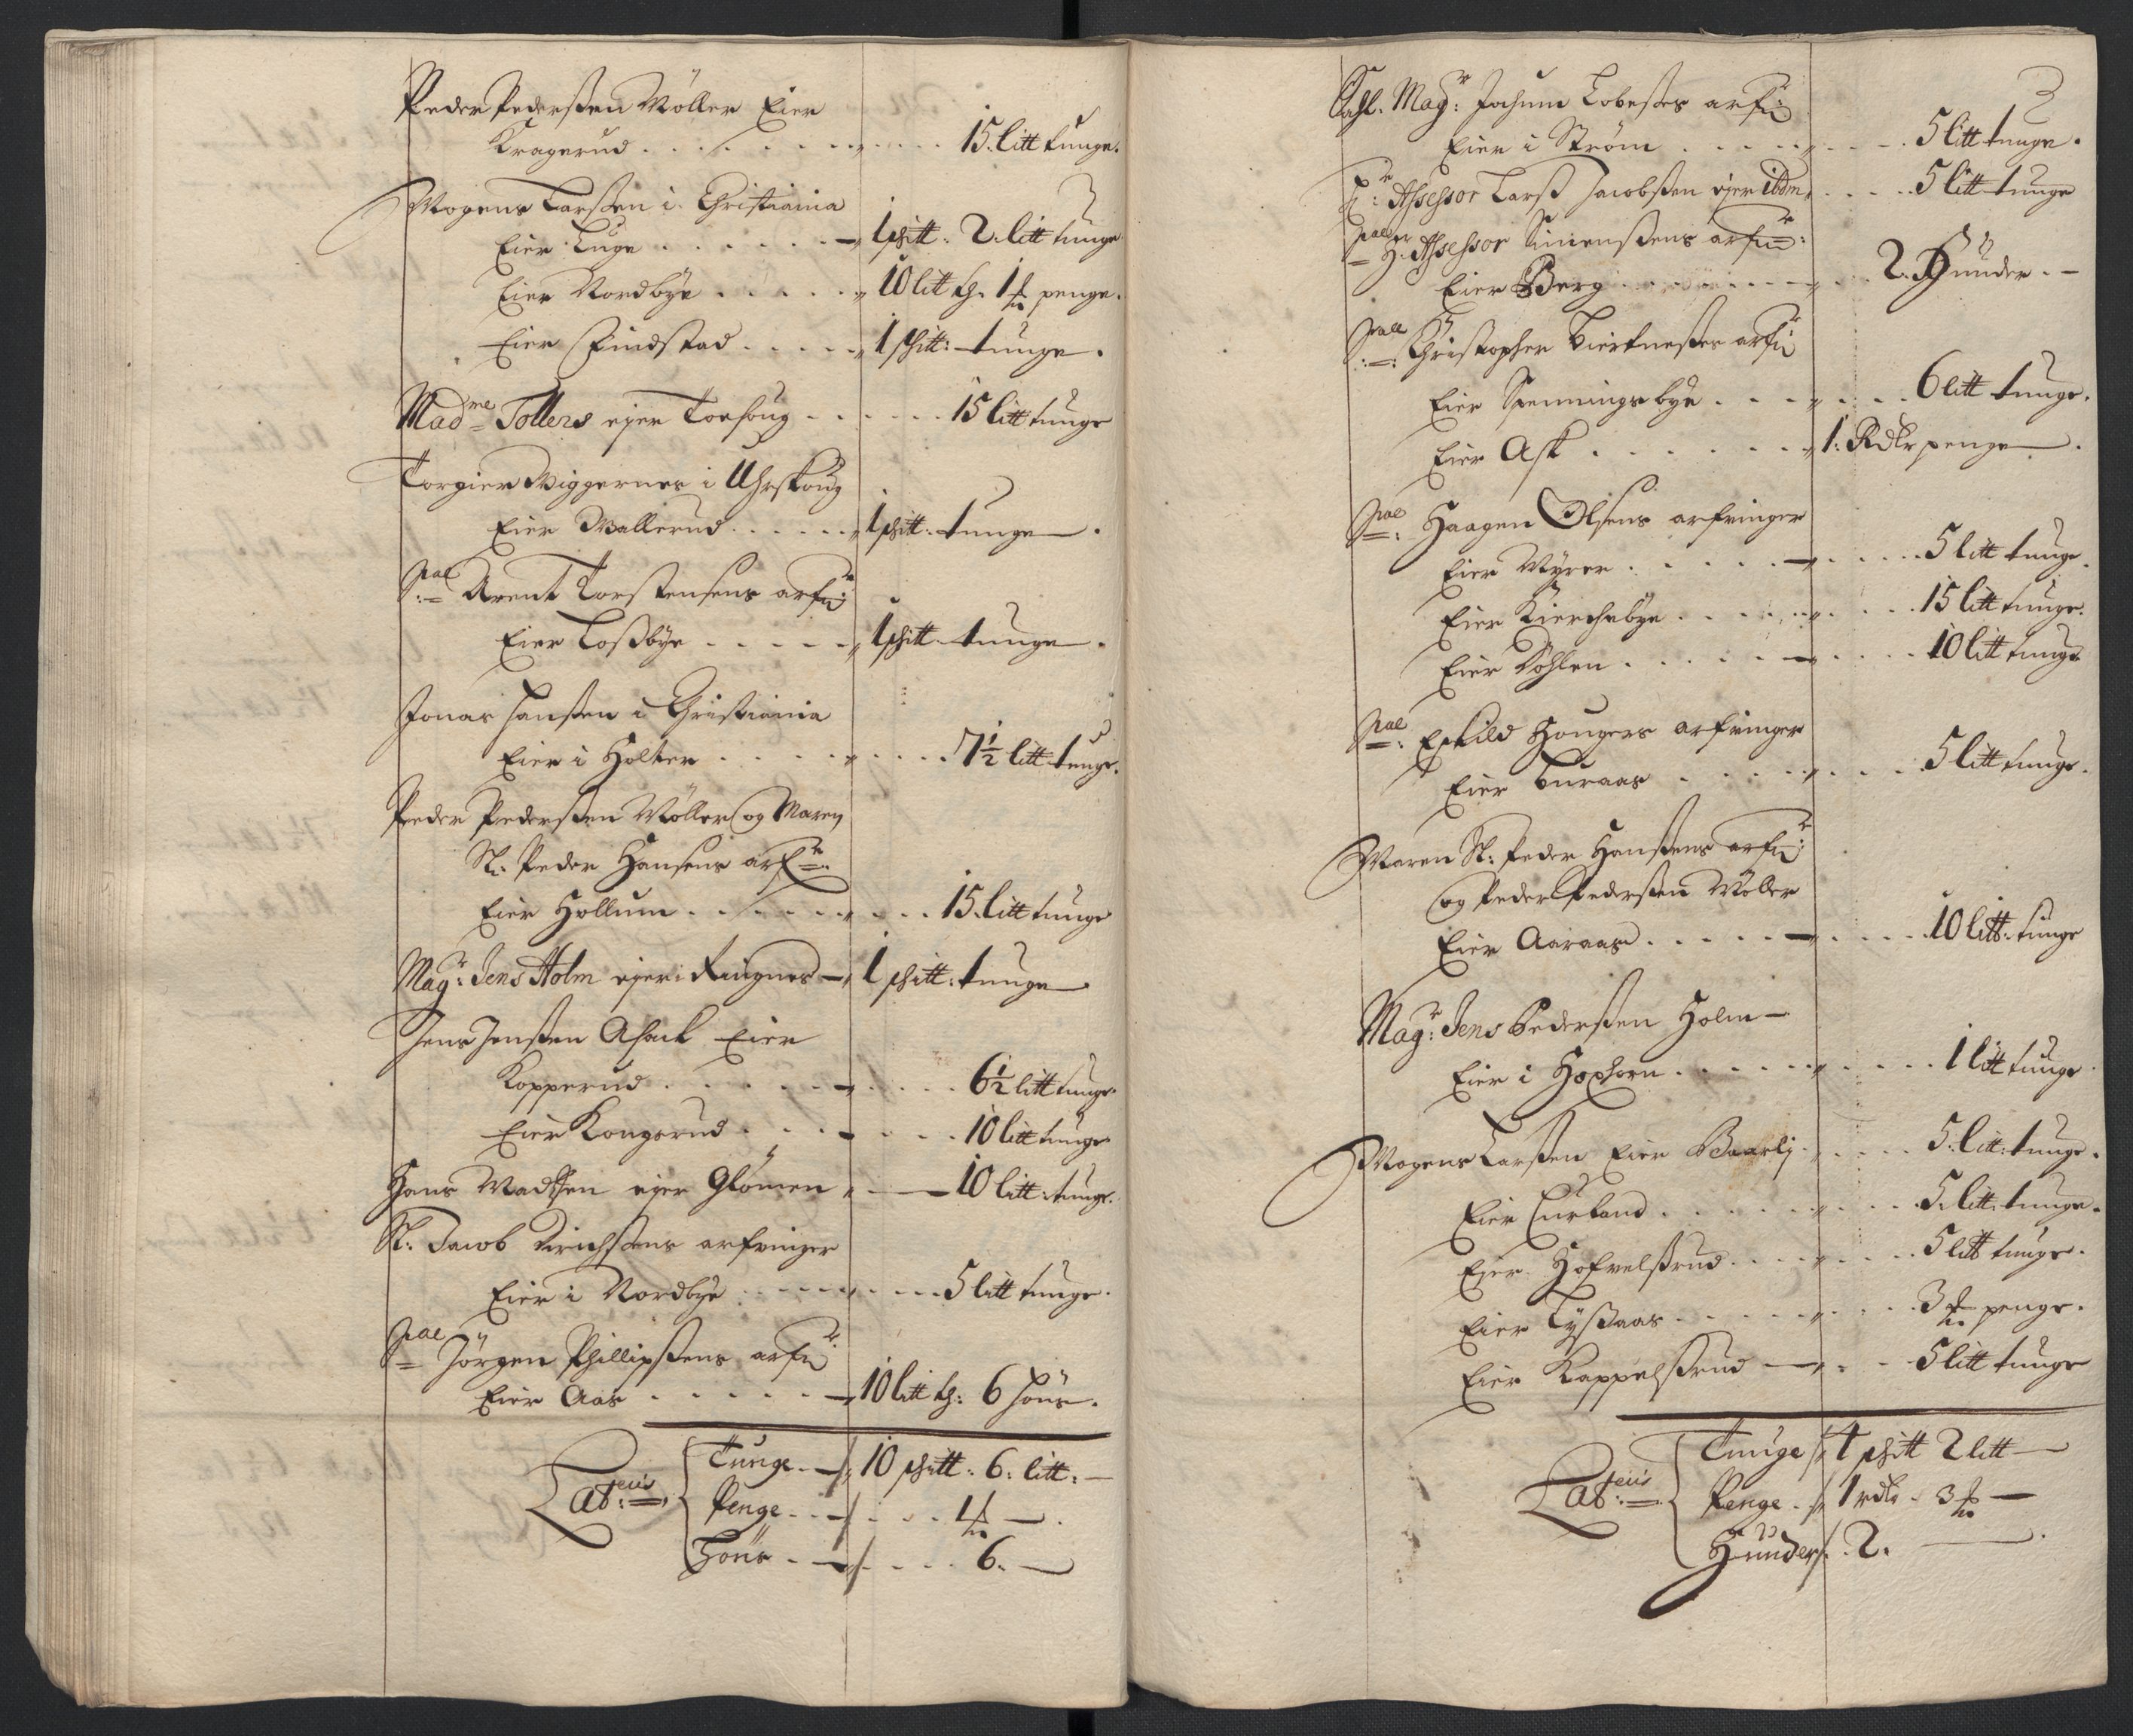 Peder Pederßen Möller Eier
Kragerud . . . . . . . . 15. litt tunge.
Mogens Larßen i Christiania
Eier Luge . . . . . . 1 schitt: 2. litt tunge
Eier Nordbye . . . . . 10 litt tg. 1 ß penge.
Eier Findstad . . . . . 1 schitt: tunge.
Mad:me Tollers ejer Torshoug . . . . . 15 litt tunge
Torgier Wiggernes i Uhrskoug
Eier Wallerud . . . . . . 1 schitt: tunge.
Sal: Arent Torstensens arf:r
Eier Loßbye . . . . . 1 schitt tunge.
Jonas Hanßen i Christiania
Eier i Holter . . . . . . . . 7½ litt tunge.
Peder Pederßen Möller og Maren
Sl: Peder Hansens arf:r
Eier Hollum . . . . . . . . 15. litt tunge
Mag:r Jens Holm ejer i Ringnes 1 schitt: tunge.
Jens Jenßen Ahack Eier
Kopperud . . . . . . . . 6½ litt tunge.
Eier Kongsrud . . . . . . . 10 litt tunge
Hans Madtzen ejer Glomen 10 litt: tunge.
Sl: Jacob Dirichsens arfvinger
Eier i Nordbye . . . . . . . . 5 litt tunge.
Sal: Jörgen Phillipßens arf:r
Eier Aas . . . . . . 10 litt tg: 6 höns.
Lat:eris Tunge . . 10 schitt: 6: litt:
Penge . . . . . 1 ß
Höns . . . . . . 6.
Sahl. Mag:r Jochum Lobeßes arf:r
Eier i Ström . . . . . . . 5 litt tunge.
H:r Assessor Larß Jacobßen ejer ibdm. . . . . 5 litt tunge
Sal: H:r Assessor Simenßens arf:r
Eier Berg . . . . . . . . 2. Hunder.
Sal: Christopher Bierkneßes arf:r
Eier Spenningsbye . . . . . . . 6 litt tunge.
Eier Ask . . . . . . . 1: Rdlr penge.
Sal: Haagen Olsens arfvinger
Eier Myrer . . . . . . . . . 5 litt tunge.
Eier Kierchebye . . . . . . . . 15 litt tunge.
Eier Döhlen . . . . . . . . . 10 litt tunge
Sal: Eskild Hougers arfvinger
Eier Buraas . . . . . . . . 5 litt tunge.
Maren Sl: Peder Hanßens arf:r
og Peder Pederßen Möller
Eier Aaraas . . . . . . . . . 10 litt: tunge
Mag:r Jens Pederßen Holm
Eier i Hoxhorn . . . . . . . . . . 1 litt tunge.
Mogens Larßen Eier Baarlj . . . . . 5. litt: tunge.
Eier Curland . . . . . . . . . 5. litt: tunge.
Ejer Hofvelsrud . . . . . . . . 5 litt tunge.
Eier Tyßaas . . . . . . . . . 3 ß penge.
Eier Kappelsrud . . . 5 litt tunge
Lat:eris Tunge 4 schitt 2 litt
Penge . 1 rdlr . 3 ß
Hunder . 2.